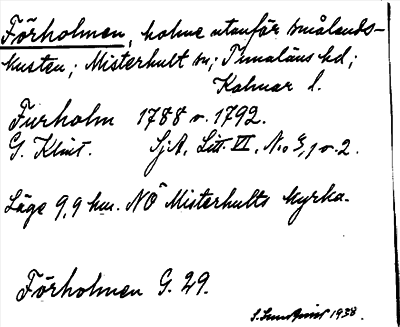 Förholmen, holme utanför Smålands-
kusten; Misterhult sn; Tunaläns hd;
Kalmar l.
Furholm 1788 o. 1792.
G. Klint. SjA, Litt. VI, N:o 9, 1 o 2.
Läge 9,9 km. NÖ Misterhults kyrka.
Förholmen G. 29.
S. Sundqvist 1938.